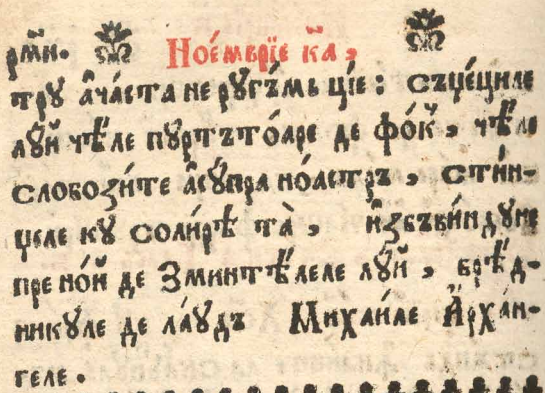 рⷨми. Ное́мврїе к҃а,
тру ача́ста не ругъ́мь ціе: съце́циле
луй чѣ́ле пуртъто́аре де фо́к, чѣ́ле
слобози́те асу́пра ноастръ, сти́н-
целе ку соли́рѣ та̀, изъбъви́ндуне
пре но́й де Зминтѣ́леле луй, врѣ́д-
никуле де ла́удъ Михаи́ле Арха́н-
геле.